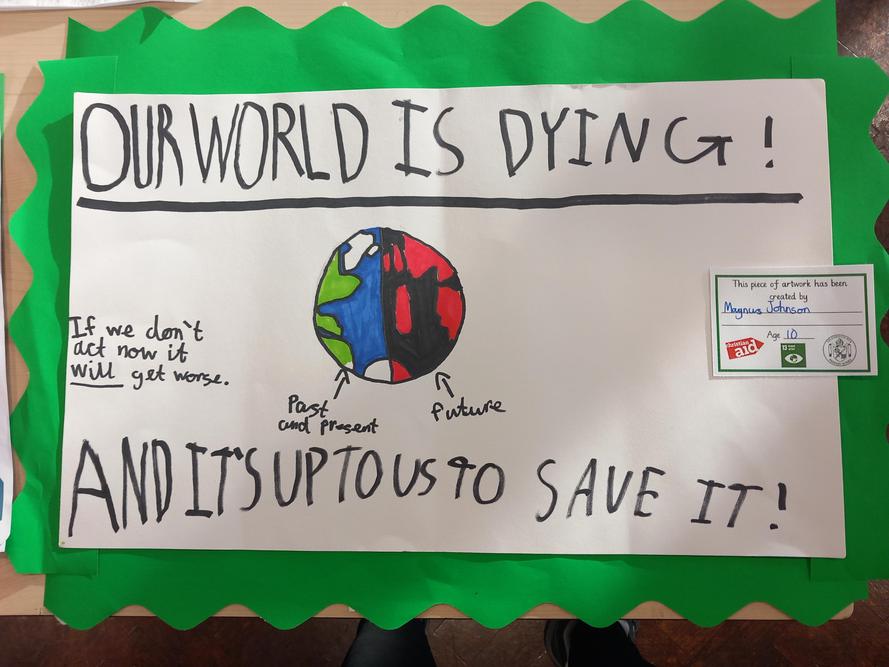 OUR WORLD IS DYING!
If we don't
act now it
will get worse.
Past
and present
future
AND IT'S UP TO US TO SAVE IT!
This piece of artwork has been
created by
Magnus Johnson
Age 10
christian
aid
13